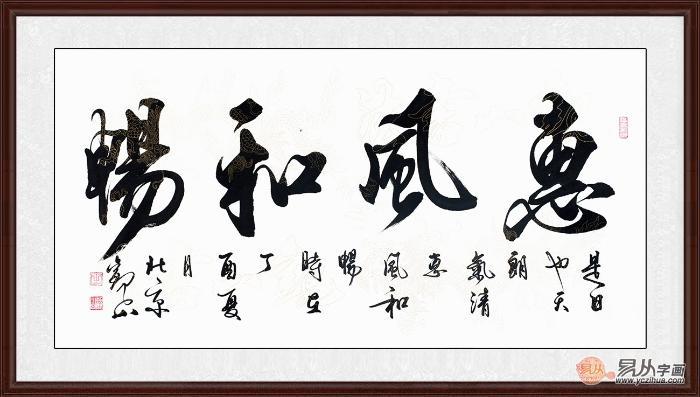 惠風和暢
是日
也天
朗
氣清
惠
風和
暢
時在
丁
酉夏
月
北京
易从字画
www.yczihua.com